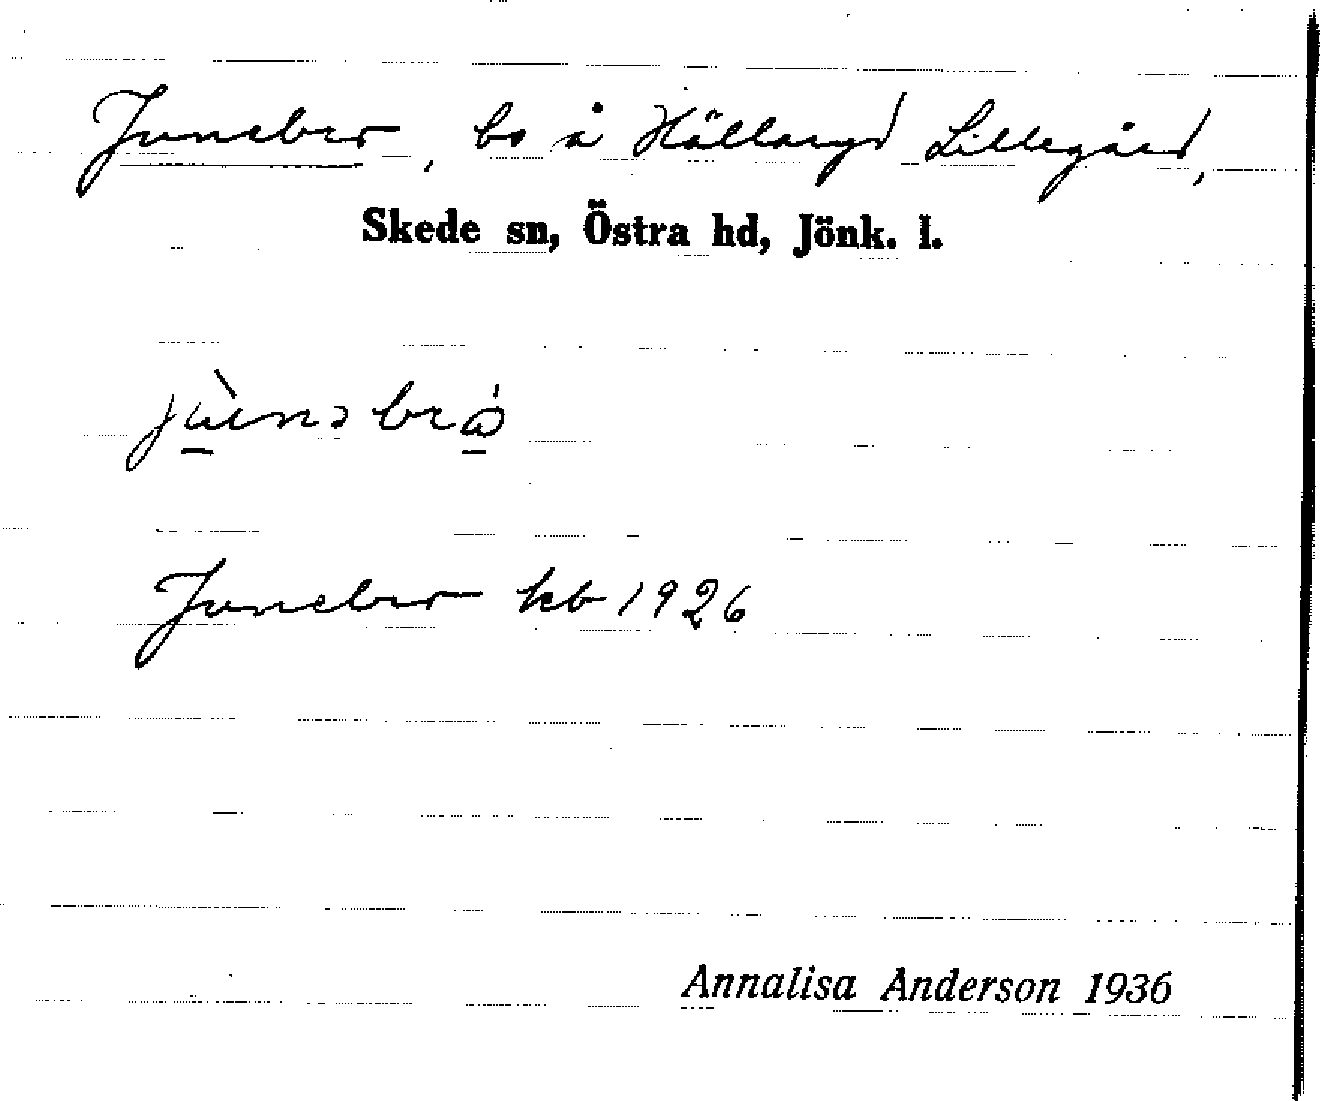 Junebro, bs å Hällaryd Lillegård,
Skede sn, Östra hd, Jönk. l.
Junebro kb 1926
Annalisa Anderson 1936